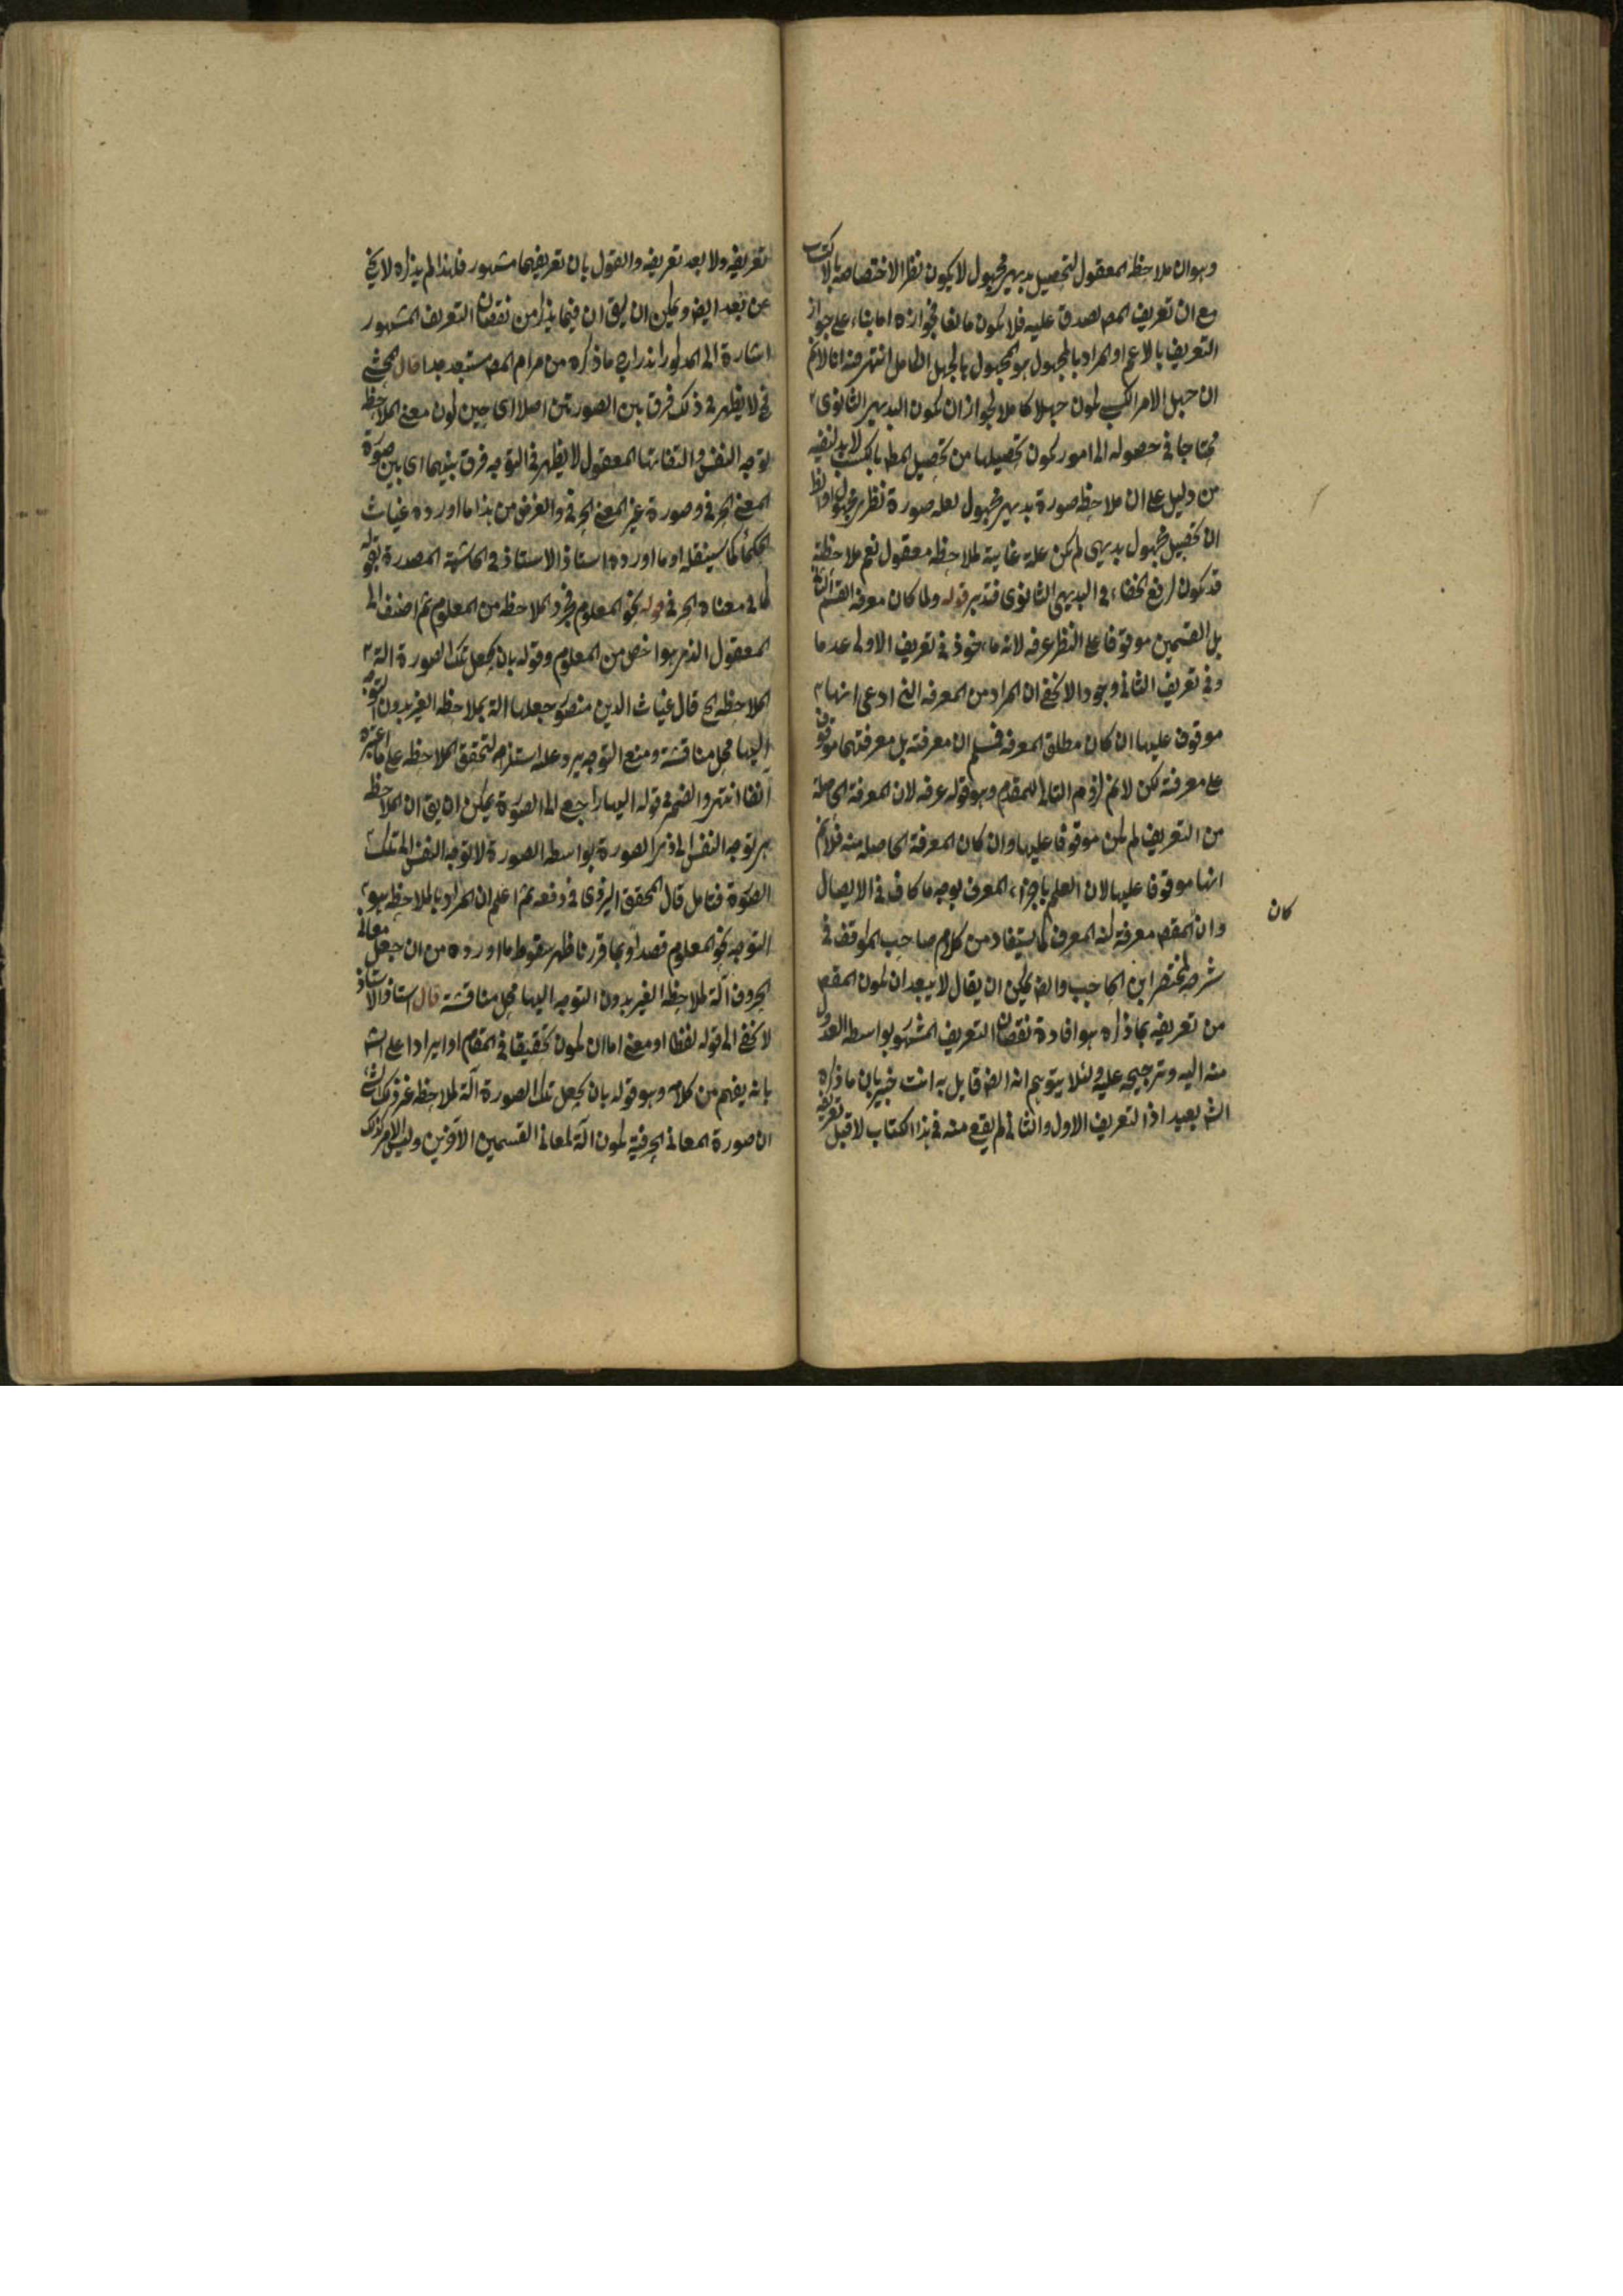 وهو ان ملاحظة المعقول لتحصيل بديهي مجهول لا يكون نظرا لاختصاصه بالاكتساب
مع ان تعريف المص يصدق عليه فلا يكون مانعا فجوازه اما بناء على جواز
التعريف بالاعم او المراد بالمجهول هو المجهول بالجهل الكامل انتهى فيه انا لانم
ان جهل الامر الكسبي يكون جهلا كاملا لجواز ان يكون البديهي الثانوي
محتاجا في حصوله الى امور يكون تحصيلها من تحصيل المط بالكسب لا بد لنفيه
من دليل على ان ملاحظة صورة بديهي مجهول لعله صورة نظري مجهول
ان تحصيل مجهول بديهي لم يكن علة غايية لملاحظة معقول نعم ملاحظته
قد يكون لرفع الخفاء في البديهي الثانوي فتدبر قوله ولما كان معرفة القسم الثاني
بل القسمين موقوفا على النظر عرفه لانه مأخوذ في تعريف الاولى عدما
وفي تعريف الثاني وجودا لا يخفى ان المراد من المعرفة التي ادعى انها
موقوف عليها ان كان مطلق المعرفة فمسلم ان معرفته بل معرفتهما موقوف
على معرفته لكن لانم لزوم التالى للمقدم وهو قوله عرفه لان المعرفة الحاصلة
من التعريف لم يكن موقوفا عليها وان كان المعرفة الحاصلة منه فلانم
انها موقوفا عليها لان العلم باجزاء المعرف بوجه ما كاف في الايصال
وان المقصم معرفة كنه المعرف كما يستفاد من كلام صاحب المواقف في
كان
شرحه لمختصر ابن الحاجب وايض يمكن ان يقال لا يبعد ان يكون المقصم
من تعريفه بما ذكره هو افادة نقصان التعريف المشهور بواسطة العدول
منه اليه وترجيحه عليه ولئلا يتوهم انه ايض قايل به انت خبير بان ما ذكره
الش بعيد اذ التعريف الاول والثاني لم يقع منه في هذا الكتاب لا قبل تعريفه
تعريفه ولا بعد تعريفه والقول بان تعريفهما مشهور فلهذا لم يذكره لا يخ
عن بعد ايض ويمكن ان يق ان فيما يذكر من نقصان التعريف المشهور
اشارة الى المذكور اندراج ما ذكره من مرام المص مستبعد جدا قال المحشي
في لا يظهر في ذلك فرق بين الصورتين اصلا اى حين كون معنى الملاحظة
توجه النفس والتفاتها المعقول لا يظهر في التوجه فرق بينهما اى بين صورة
المعنى الحرفي وصورة غير المعنى الحرفي والغرض من هذا ما اورده غياث
الحكماء كما سينقله او ما اورده استاذ الاستاذ في الحاشية المصدرة بقوله
كما في معناه الحرفي قوله نحو المعلوم فجرد الملاحظة من المعلوم ثم اضف الى
المعقول الذي هو اخص من المعلوم وقوله بان يجعل تلك الصورة الة
الملاحظة الخ قال غياث الدين منصور جعلها الة بملاحظة الغير بدون التوجه
اليها محل مناقشة ومنع التوجه يرد على استلزام لتحقق الملاحظة على ما اعتبره
انفا انتهى والضمير في قوله اليها راجع الى الصورة يمكن ان يق ان الملاحظة
هي توجه النفس الى ذي الصورة بواسطة الصورة لا توجه النفس الى تلك
الصورة فتامل قال المحقق اليزدى في دفعه ثم اعلم ان المراد بالملاحظة هو
التوجه نحو المعلوم قصدا وبما قررنا ظهر سقوط ما اورده من ان جعل معاني
الحروف آلة لملاحظة الغير بدون التوجه اليها محل مناقشة قال استاذ الاستاذ
لا يخفى الى قوله لفظا او معنى اما ان يكون تحقيقا في المقام او ايرادا على الش
بانه يفهم من كلامه وهو قوله بان يجعل تلك الصورة آلة لملاحظة غير ذلك الشيء
ان صورة المعاني الحرفية يكون آلة لمعاني القسمين الآخرين وليس الامر كذلك